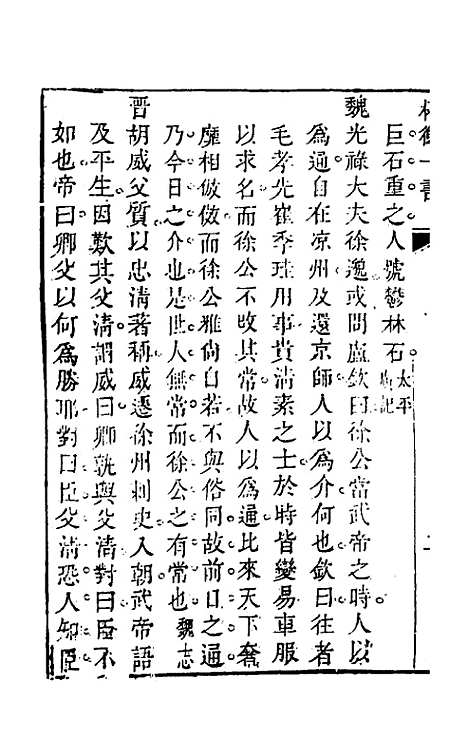 一書
巨石重之人號鬱林石 太平御記
魏光祿大夫徐邈或問盧欽曰徐公當武帝之時人以
為通自在凉州及還京師人以為介何也欽曰往者
毛孝先崔季珪用事貴清素之士於時皆變易車服
以求名而徐公不改其常故人以為通比來天下奢
靡相倣傚而徐公雅尙自若不與俗同故前日之通
乃今日之介也是世人無常而徐公之有常也 魏志
晉胡威父質以忠清著稱威遷徐州刺史入朝武帝語
及平生因歎其父清謂威曰卿孰與父清對曰臣不
如也帝曰卿父以何為勝耶對曰臣父清恐人知臣